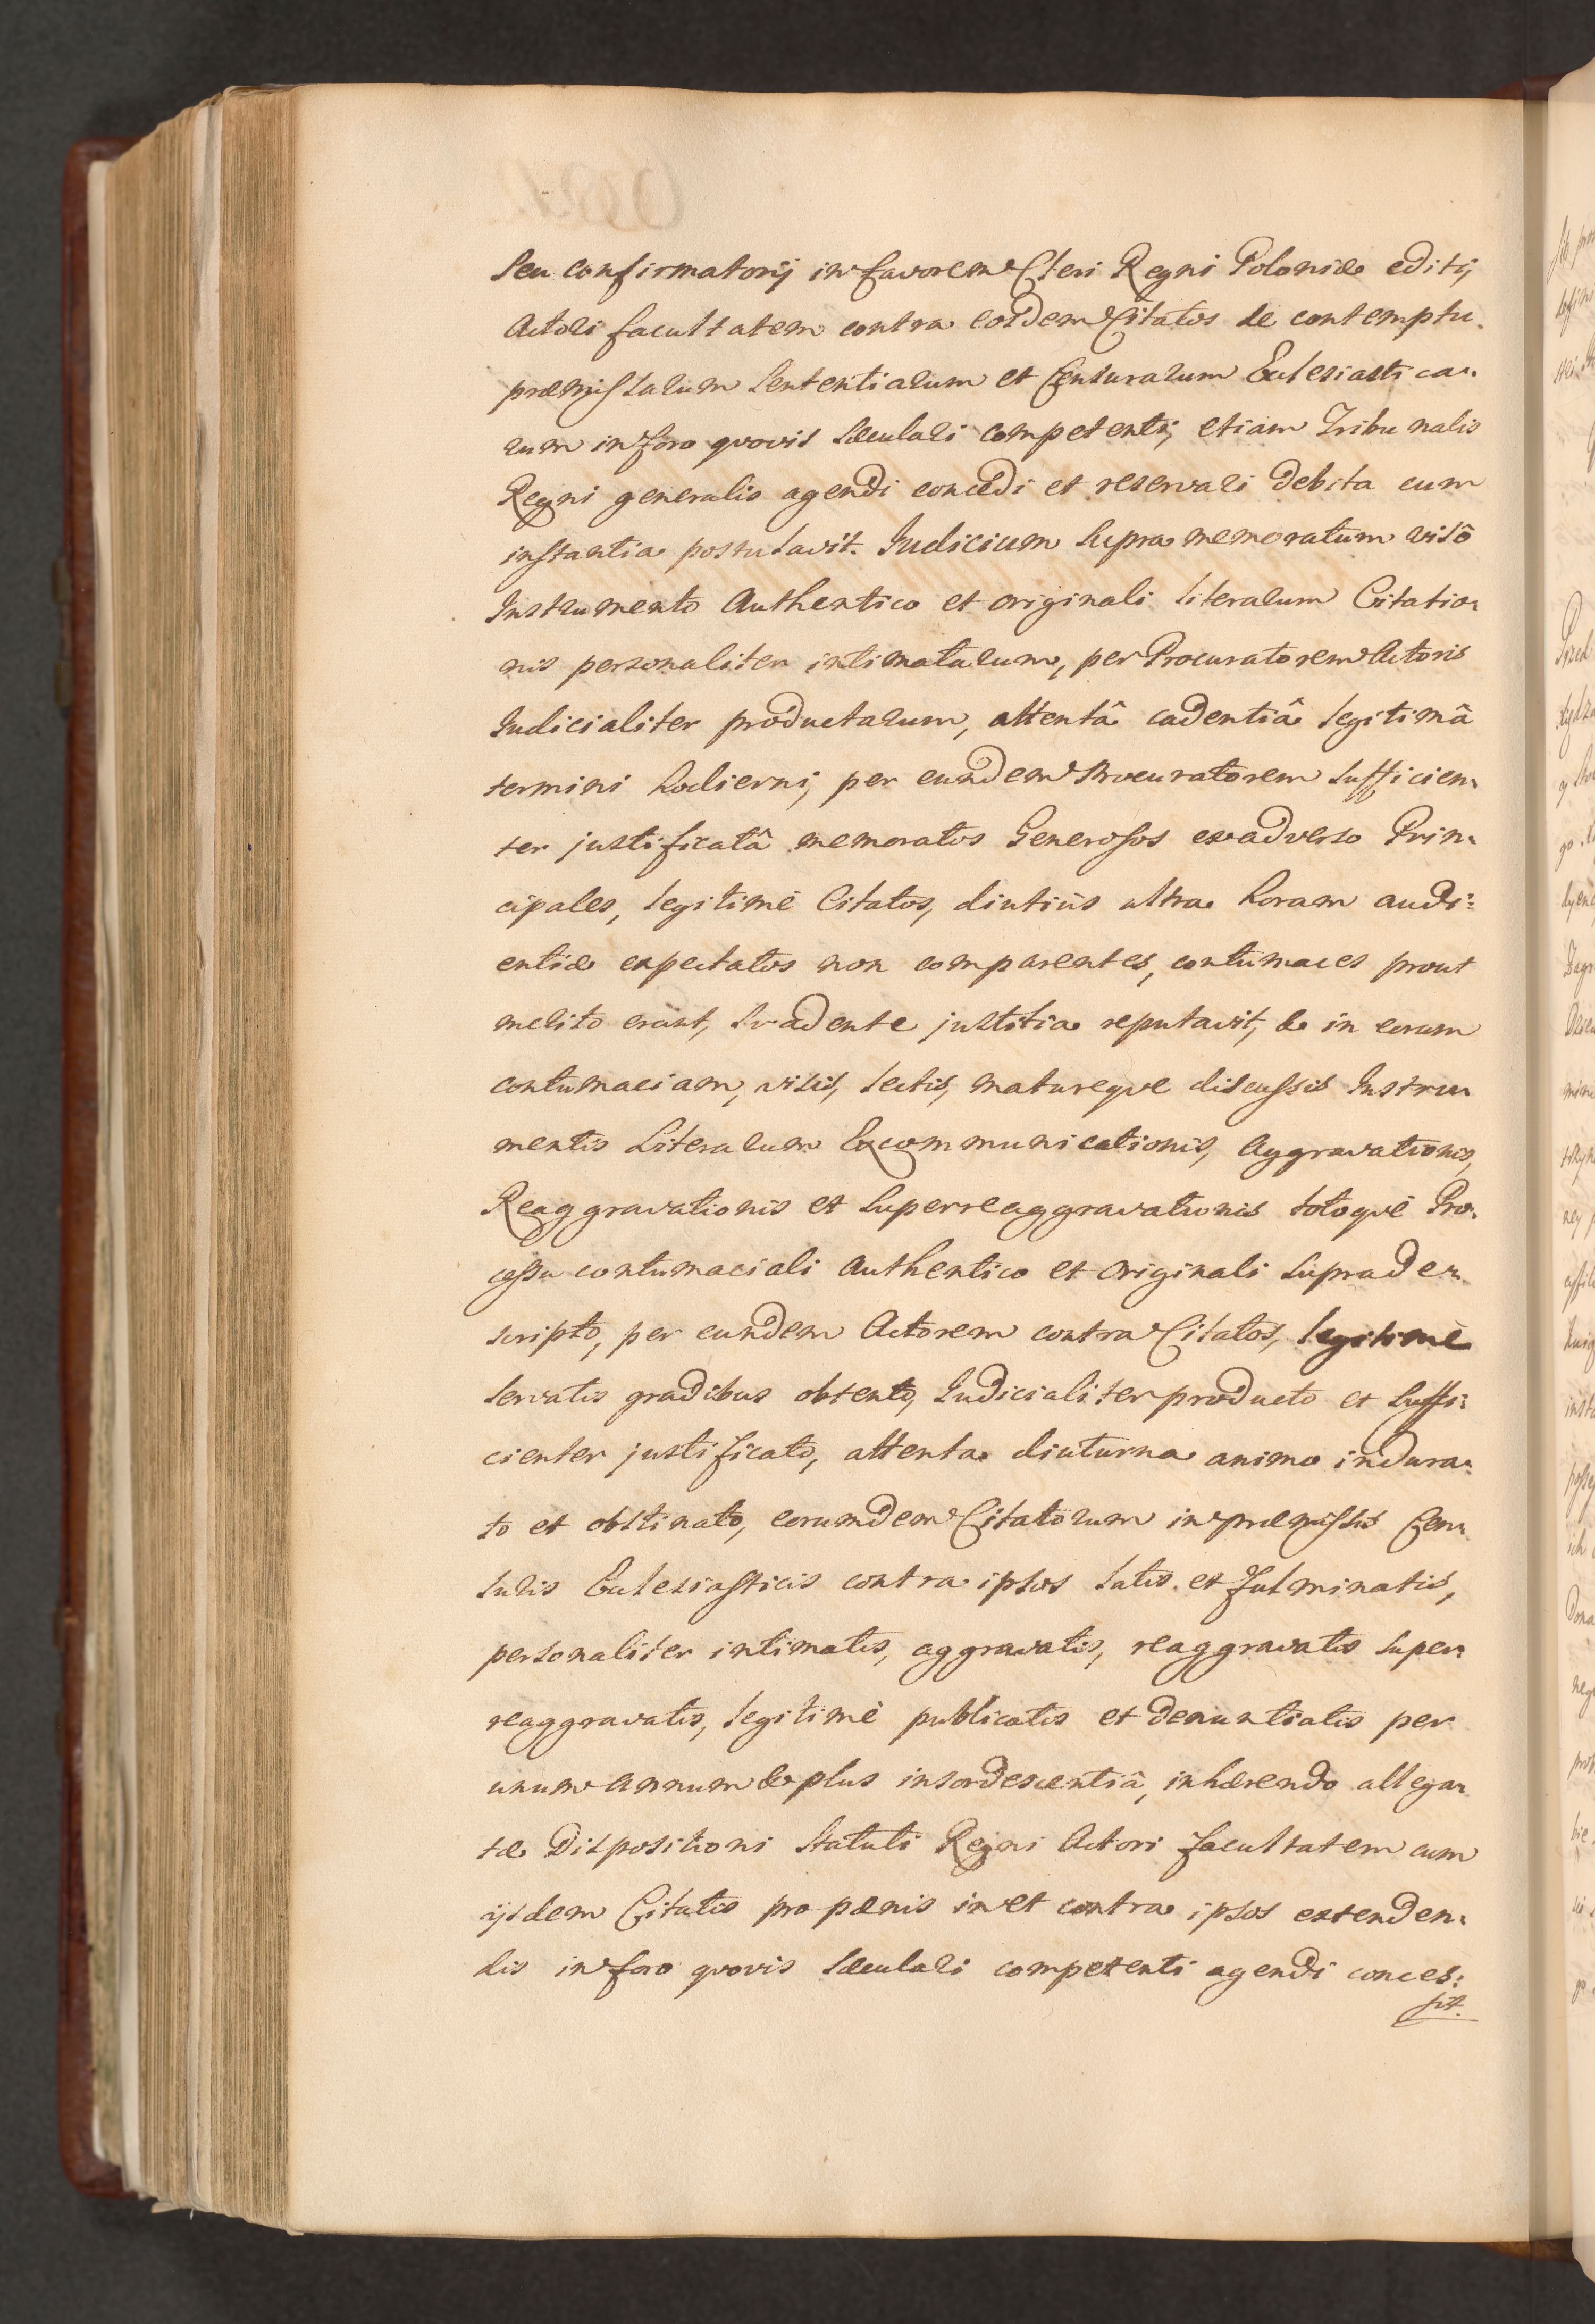 seu confirmatorij in favorem Cleri Regni Poloniæ editi,
Actori facultatem contra eosdem Citatos de contemptu
præmissarum Sententiarum et Censurarum Eclesiastica„
rum in foro qvovis sæculari competenti, etiam Tribunalis
Regni generalis agendi concedi et reservari debita cum
instantia postulavit. Iudicium supra memoratum visô
Instrumento Authentico et originali Literarum Citatio„
nis personaliter intimatarum, per Procuratorem Actoris
Iudicialiter productarum, attentâ cadentiâ legitimâ
termini hodierni, per eundem Procuratorem sufficien„
ter justificatâ memoratos Generosos ex adverso Prin„
cipales, legitimè Citatos, diutiùs ultra horam audi:
entiæ expectatos non comparentes, contumaces prout
merito erant, svadente justitia reputavit, & in eorum
contumaciam, visis, lectis, matureqve discussis Instru„
mentis Literarum Excommunicationis, Aggravationis,
Reaggravationis et Superreaggravationis totoqvè Pro„
cessu contumaciali Authentico et originali supra de„
scripto, per eundem Actorem contra Citatos, legitimè
servatis gradibus obtento, Iudicialiter producto et suffi:
cienter justificato, attenta diuturna animo indura„
to et obstinato, eorumdem Citatorum in præmissis Cen„
suris Eclesiasticis contra ipsos latis et fulminatis,
personaliter intimatis, aggravatis, reaggravatis super„
reaggravatis, legitimè publicatis et denuntiatis per
unum annum & plus insordescentiâ, inhærendo allega„
tæ Dispositioni Statuti Regni Actori facultatem cum
ijsdem Citatis pro pænis in et contra ipsos extenden„
dis in foro qvovis sæculari competenti agendi conces:
sit.